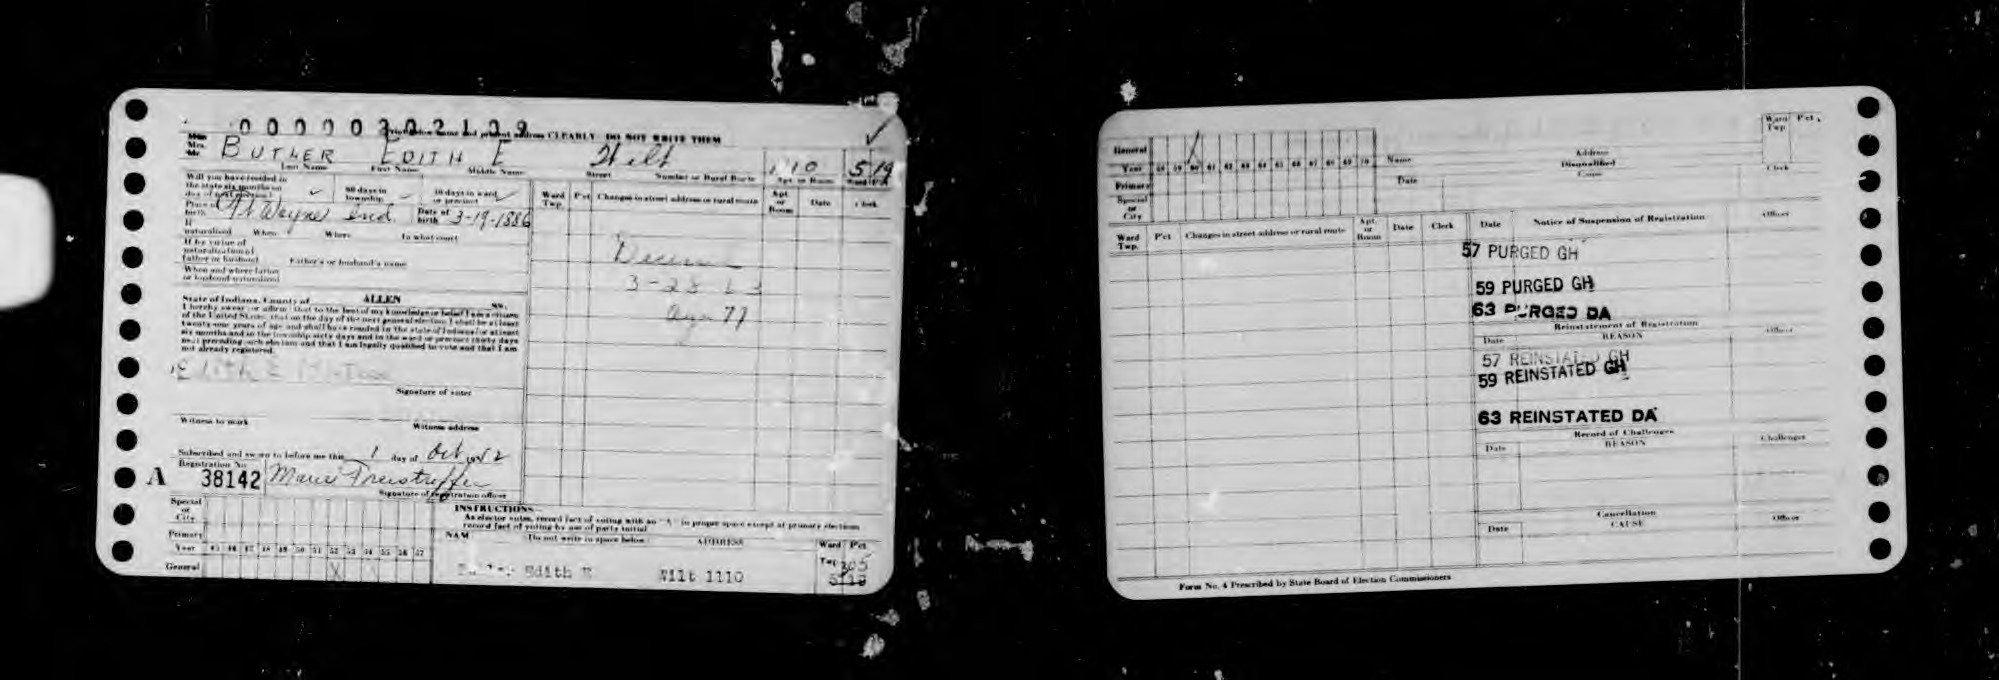 00000302109
Print below name and present address CLEARLY DO NOT WRITE THEM
Miss
Mrs.
Mr.
BUTLER EDITH E Wilt 1110 5 19
Last Name First Name Middle Name Street Number or Rural Route Apt. or Room Ward Pct.
Will you have resided in
the state six months on
day of next election?
60 days in
township
30 days in ward
or precinct
Place of
birth Ft Wayne Ind. Date of
birth 3-19-1886
If
naturalized When Where In what court
If by virtue of
naturalization of
father or husband Father's or husband's name
When and where father
or husband naturalized
State of Indiana, County of ALLEN ss.
I hereby swear (or affirm) that to the best of my knowledge or belief I am a citizen
of the United States, that on the day of the next general election I shall be at least
twenty-one years of age and shall have resided in the state of Indiana for at least
six months and in the township sixty days and in the ward or precinct thirty days
next preceding such election and that I am legally qualified to vote and that I am
not already registered.
Edith E Butler
Signature of voter
Witness to mark Witness address
Subscribed and sworn to before me this 1 day of Oct 1952
Registration No.
A 38142 Marie Freistroffer
Signature of registration officer
Special
or
City
Primary
Year 45 46 47 48 49 50 51 52 53 54 55 56 57
General X
Ward
Twp. Pct Changes in street address or rural route Apt.
or
Room Date Clerk
3-28 63
age 77
INSTRUCTIONS
As elector votes, record fact of voting with an "X" in proper space except at primary elections
record fact of voting by use of party initial
NAME Do not write in space below ADDRESS Ward Pct.
Twp.
305
Butler Edith E Wilt 1110 519
General
Year 58 59 60 61 62 63 64 65 66 67 68 69 70
Primary
Special
or
City
Name Address
Disqualified
Date Cause Clerk
Ward
Twp Pct.
Ward
Twp. Pct Changes in street address or rural route Apt.
or
Room Date Clerk
Date Notice of Suspension of Registration Officer
57 PURGED GH
59 PURGED GH
63 PURGED DA
Reinstatement of Registration
Date REASON Officer
57 REINSTATED GH
59 REINSTATED GH
63 REINSTATED DA
Record of Challenges
Date REASON Challenger
Cancellation
Date CAUSE Officer
Form No. 4 Prescribed by State Board of Election Commissioners